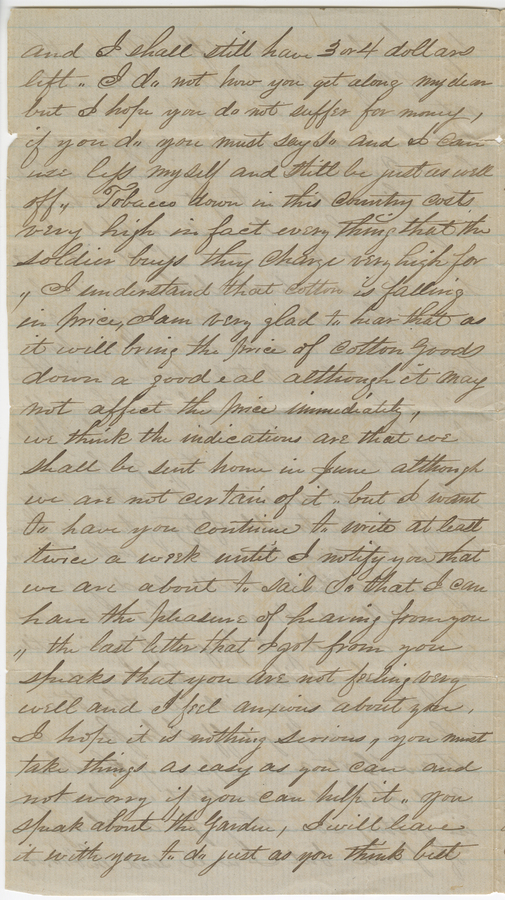 and I shall still have 3 or 4 dollars
lift „ I do not how you get along my dear
but I hope you do not suffer for money,
if you do you must say so and I can
use less myself and still be just as well
off „ Tobacco down in this country costs
very high in fact every thing that the
soldier buys they charge very high for
„ I understand that cotton is falling
in price, I am very glad to hear that as
it will bring the price of cotton goods
down a good eal although it may
not affect the price immediatily,
we think the indications are that we
shall be sent home in June although
we are not certain of it „ but I want
to have you continue to write at least
twice a week until I notify you that
we are about to sail so that I can
have the pleasure of hearing from you
„ the last letter that I got from you
speaks that you are not feeling very
well and I feel anxious about you,
I hope it is nothing serious, you must
take things as easy as you can and
not worry if you can help it „ you
speak about the Garden, I will leave
it with you to do just as you think best